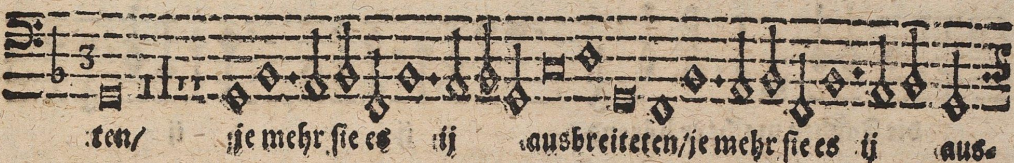 3
ten/ je mehr sie es ij ausbreiteten/ je mehr sie es ij aus-